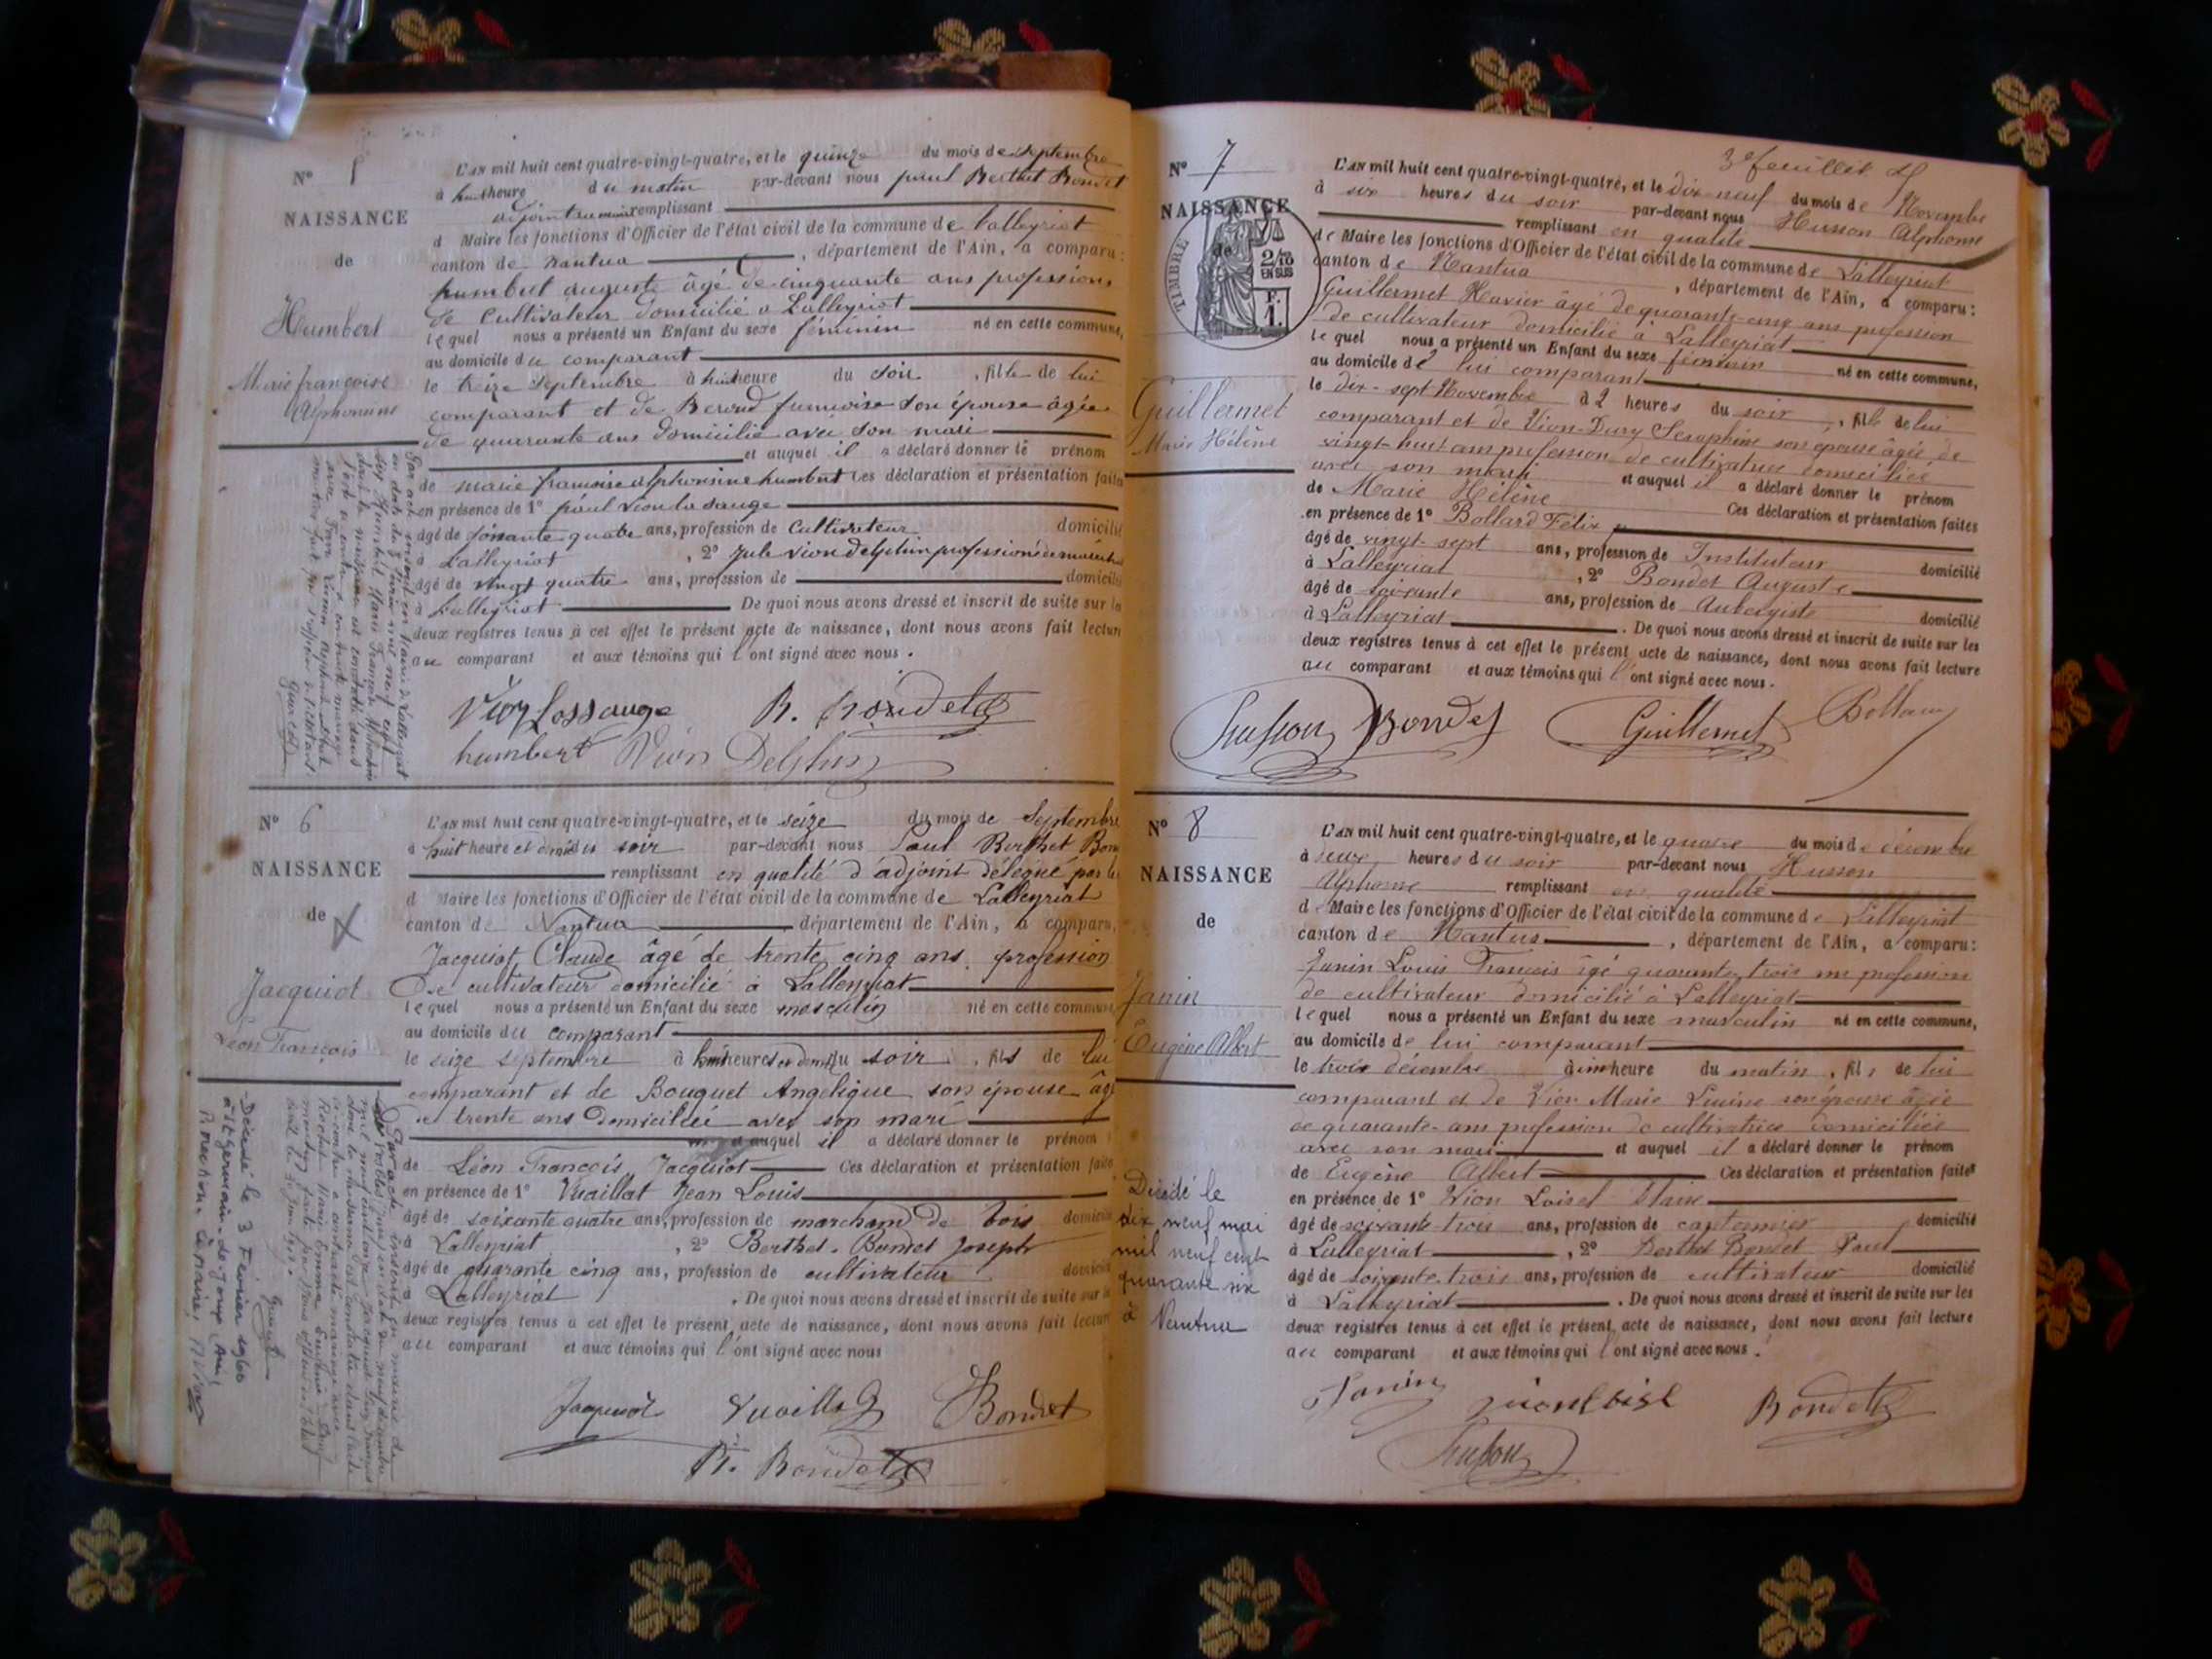 N° 5
NAISSANCE
de
Humbert
Marie françoise
Alphonsine
L'an mil huit cent quatre-vingt-quatre, et le quinze du mois de septembre
à huit heure du matin par-devant nous paul Berthet Bondet
adjoint au maire remplissant
d Maire les fonctions d'Officier de l'état civil de la commune de Lalleyriat
canton de nantua, département de l'Ain, a comparu:
humbert auguste âgé de cinquante ans profession
de Cultivateur domicilié a Lalleyriat
lequel nous a présenté un Enfant du sexe féminin né en cette commune,
au domicile du comparant
le treize septembre à huit heure du soir, fille de lui
comparant et de Beroud françoise son épouse âgée
de quarante ans domicilié avec son mari
et auquel il a déclaré donner le prénom
de marie francoise alphonsine humbert Ces déclaration et présentation faites
en présence de 1° paul vion la sauge
âgé de soixante quatre ans, profession de Cultivateur domicilié
à Lalleyriat, 2° Jule vion delphin profession
âgé de vingt quatre ans, profession de domicilié
à Lalleyriat De quoi nous avons dressé et inscrit de suite sur les
deux registres tenus à cet effet le présent acte de naissance, dont nous avons fait lecture
au comparant et aux témoins qui l'ont signé avec nous.
Vion Lossauge B. Bondet
humbert Vion Delphin
N° 6
NAISSANCE
de
Jacquiot
Léon François
L'an mil huit cent quatre-vingt-quatre, et le seize du mois de Septembre
à huit heure et demi du soir par-devant nous Paul Berthet Bon
remplissant en qualité d'adjoint délégué par le
d Maire les fonctions d'Officier de l'état civil de la commune de Lalleyriat
canton de Nantua, département de l'Ain, a comparu,
Jacquiot Claude âgé de trente cinq ans profession
De cultivateur domicilié à Lalleyriat
lequel nous a présenté un Enfant du sexe masculin né en cette commune
au domicile du comparant
le seize septembre à huit heures et demi du soir, fils de lui
comparant et de Bouquet Angelique son épouse âgé
de trente ans Domiciliéé avec son mari
et auquel il a déclaré donner le prénom
de Léon François Jacquiot Ces déclaration et présentation faite
en présence de 1° Vuaillat Jean Louis
âgé de soixante quatre ans, profession de marchand de bois domicilié
à Lalleyriat, 2° Berthet-Bondet Joseph
âgé de quarante cinq ans, profession de cultivateur domicilié
à Lalleyriat. De quoi nous avons dressé et inscrit de suite sur les
deux registres tenus à cet effet le présent acte de naissance, dont nous avons fait lecture
au comparant et aux témoins qui l'ont signé avec nous
Jacquiot Vuaillat Bondet
B. Bondet
Décédé le 3 Février 1960
à St Germain-de-Joux (Ain)
Le maire,
3e feuillet
N° 7
NAISSANCE
de
TIMBRE
2/10
EN SUS
F.
1.
Guillermet
Marie Hélène
L'an mil huit cent quatre-vingt-quatre, et le dix neuf du mois de Novembre
à six heures du soir par-devant nous Husson Alphonse
remplissant en qualité
de Maire les fonctions d'Officier de l'état civil de la commune de Lalleyriat
canton de Nantua, département de l'Ain, a comparu:
Guillermet Xavier âgé de quarante-cinq ans profession
de cultivateur domicilié à Lalleyriat
lequel nous a présenté un Enfant du sexe féminin né en cette commune,
au domicile de lui comparant
le dix-sept Novembre à 2 heures du soir, fille de lui
comparant et de Vion-Dury Seraphine son épouse âgée de
vingt huit ans profession de cultivatrice domiciliéé
avec son mari et auquel il a déclaré donner le prénom
de Marie Hélène Ces déclaration et présentation faites
en présence de 1° Bollard Félix
âgé de vingt-sept ans, profession de Instituteur domicilié
à Lalleyriat, 2° Bondet Auguste
âgé de soixante ans, profession de Aubergiste domicilié
à Lalleyriat. De quoi nous avons dressé et inscrit de suite sur les
deux registres tenus à cet effet le présent acte de naissance, dont nous avons fait lecture
au comparant et aux témoins qui l'ont signé avec nous.
Husson Bondet Guillermet Bollard
N° 8
NAISSANCE
de
Janin
Eugène Albert
Décédé le
dix neuf mai
mil neuf cent
quarante six
à Nantua
L'an mil huit cent quatre-vingt-quatre, et le quatre du mois de décembre
à deux heures du soir par-devant nous Husson
Alphonse remplissant en qualité
de Maire les fonctions d'Officier de l'état civil de la commune de Lalleyriat
canton de Nantua, département de l'Ain, a comparu:
Janin Louis François âgé quarante trois ans profession
de cultivateur domicilié à Lalleyriat
lequel nous a présenté un Enfant du sexe masculin né en cette commune,
au domicile de lui comparant
le trois décembre à une heure du matin, fils de lui
comparant et de Vion Marie son épouse âgée
de quarante-ans profession de cultivatrice domiciliéé
avec son mari et auquel il a déclaré donner le prénom
de Eugène Albert Ces déclaration et présentation faites
en présence de 1° Vion Loisel
âgé de soixante-trois ans, profession de cantonnier domicilié
à Lalleyriat, 2° Berthet Bondet Paul
âgé de soixante-trois ans, profession de cultivateur domicilié
à Lalleyriat. De quoi nous avons dressé et inscrit de suite sur les
deux registres tenus à cet effet le présent acte de naissance, dont nous avons fait lecture
au comparant et aux témoins qui l'ont signé avec nous.
Janin vionloisel Bondet
Husson